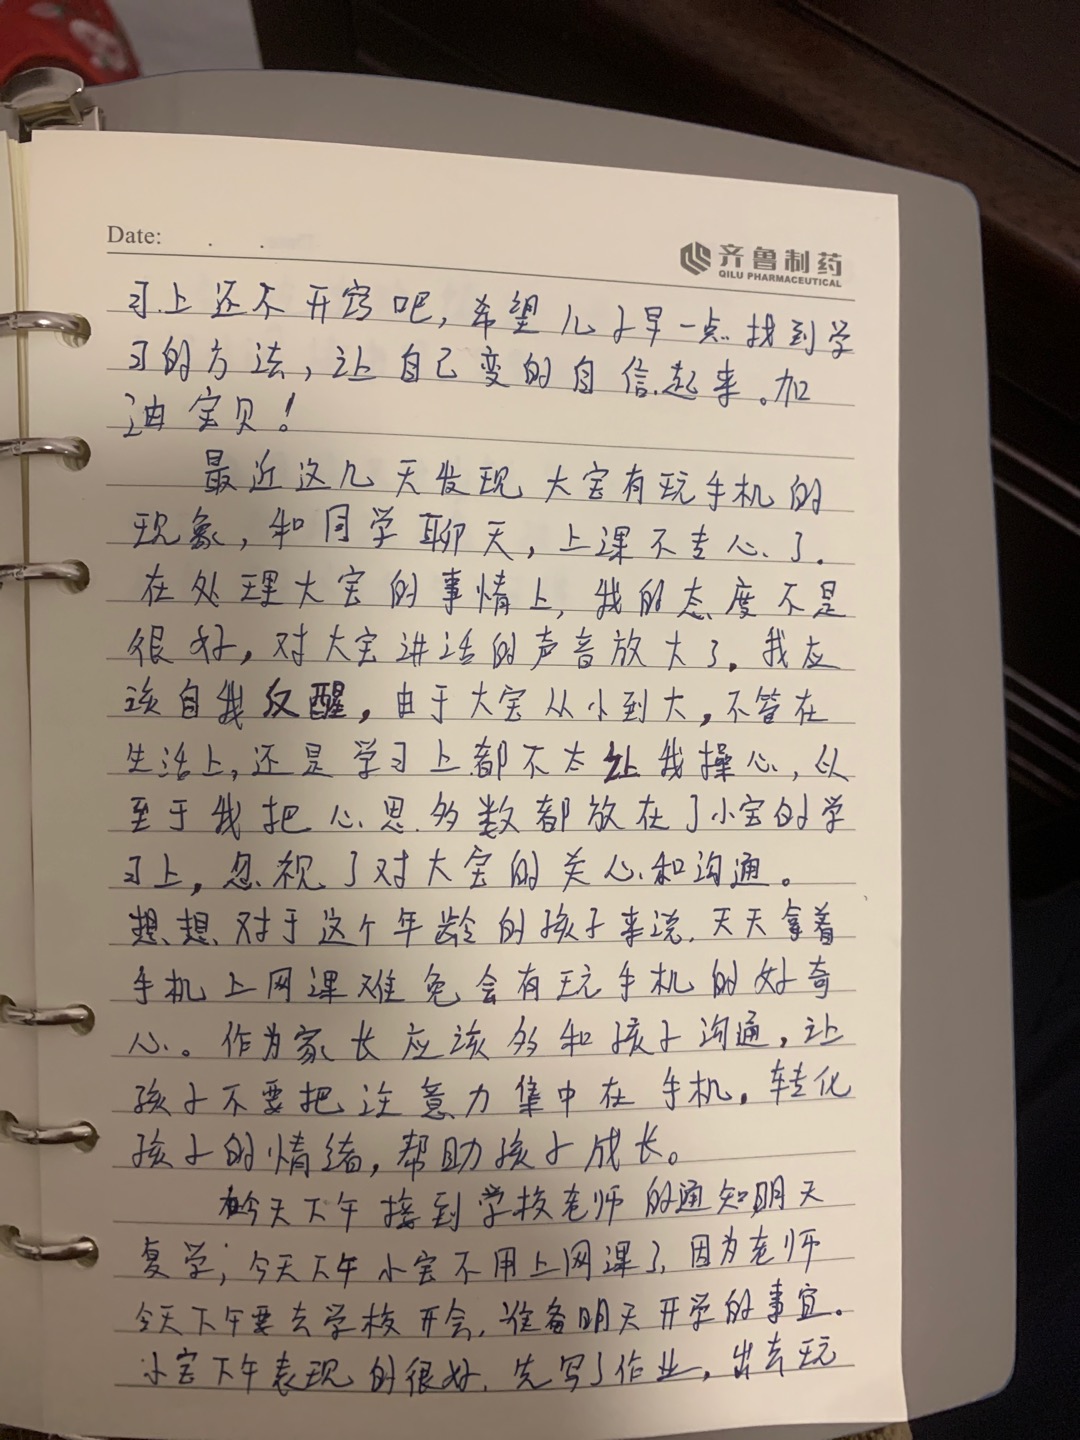 Date: . .
齐鲁制药
QILU PHARMACEUTICAL
习上还不开窍吧,希望儿子早一点找到学
习的方法,让自己变的自信起来。加
油宝贝!
最近这几天发现大宝有玩手机的
现象,和同学聊天,上课不专心了.
在处理大宝的事情上,我的态度不是
很好,对大宝讲话的声音放大了.我应
该自我反醒,由于大宝从小到大,不管在
生活上,还是学习上都不太让我操心,以
至于我把心思多数都放在了小宝的学
习上,忽视了对大宝的关心和沟通。
想想对于这个年龄的孩子来说,天天拿着
手机上网课难免会有玩手机的好奇
心。作为家长应该多和孩子沟通,让
孩子不要把注意力集中在手机,转化
孩子的情绪,帮助孩子成长。
今天下午接到学校老师的通知明天
复学;今天下午小宝不用上网课了,因为老师
今天下午要去学校开会,准备明天开学的事宜.
小宝下午表现的很好,先写了作业,出去玩